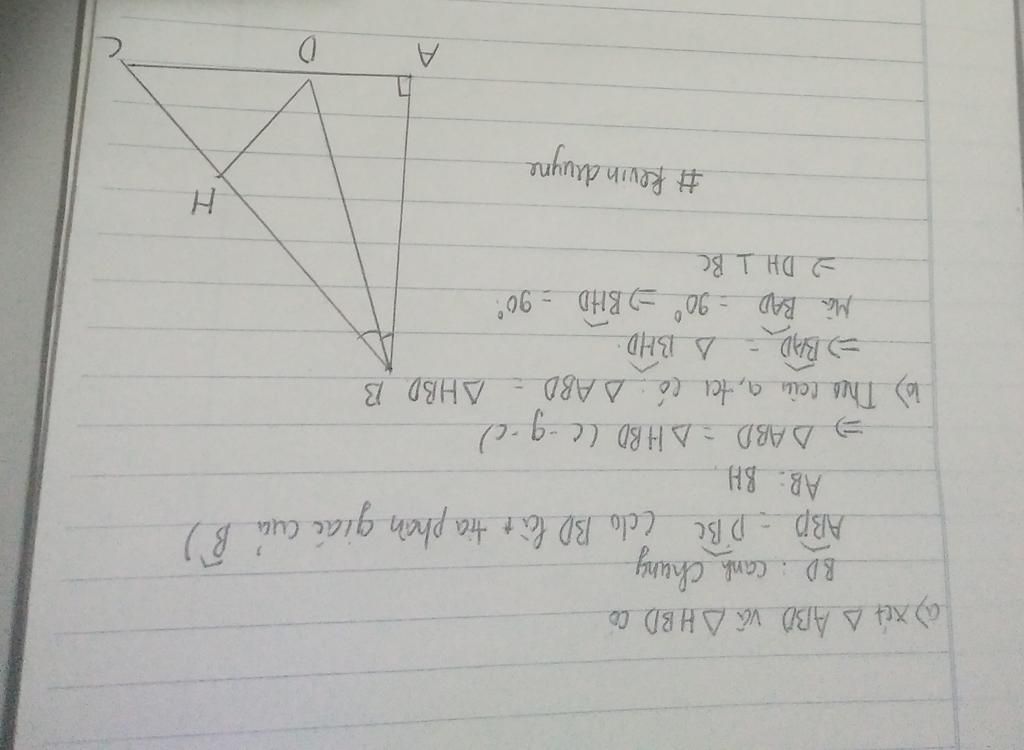 a) Xét △ ABD và △ HBD có
BD : cạnh chung
ABD = DBC (do BD là tia phân giác của B)
AB = BH
⇒ △ ABD = △ HBD (c-g-c)
b) Theo câu a, ta có: △ ABD = △ HBD
⇒ BAD = △ BHD.
Mà BAD = 90° ⇒ BHD = 90°
⇒ DH ⊥ BC
# Kevinduyne
B
H
A
D
C